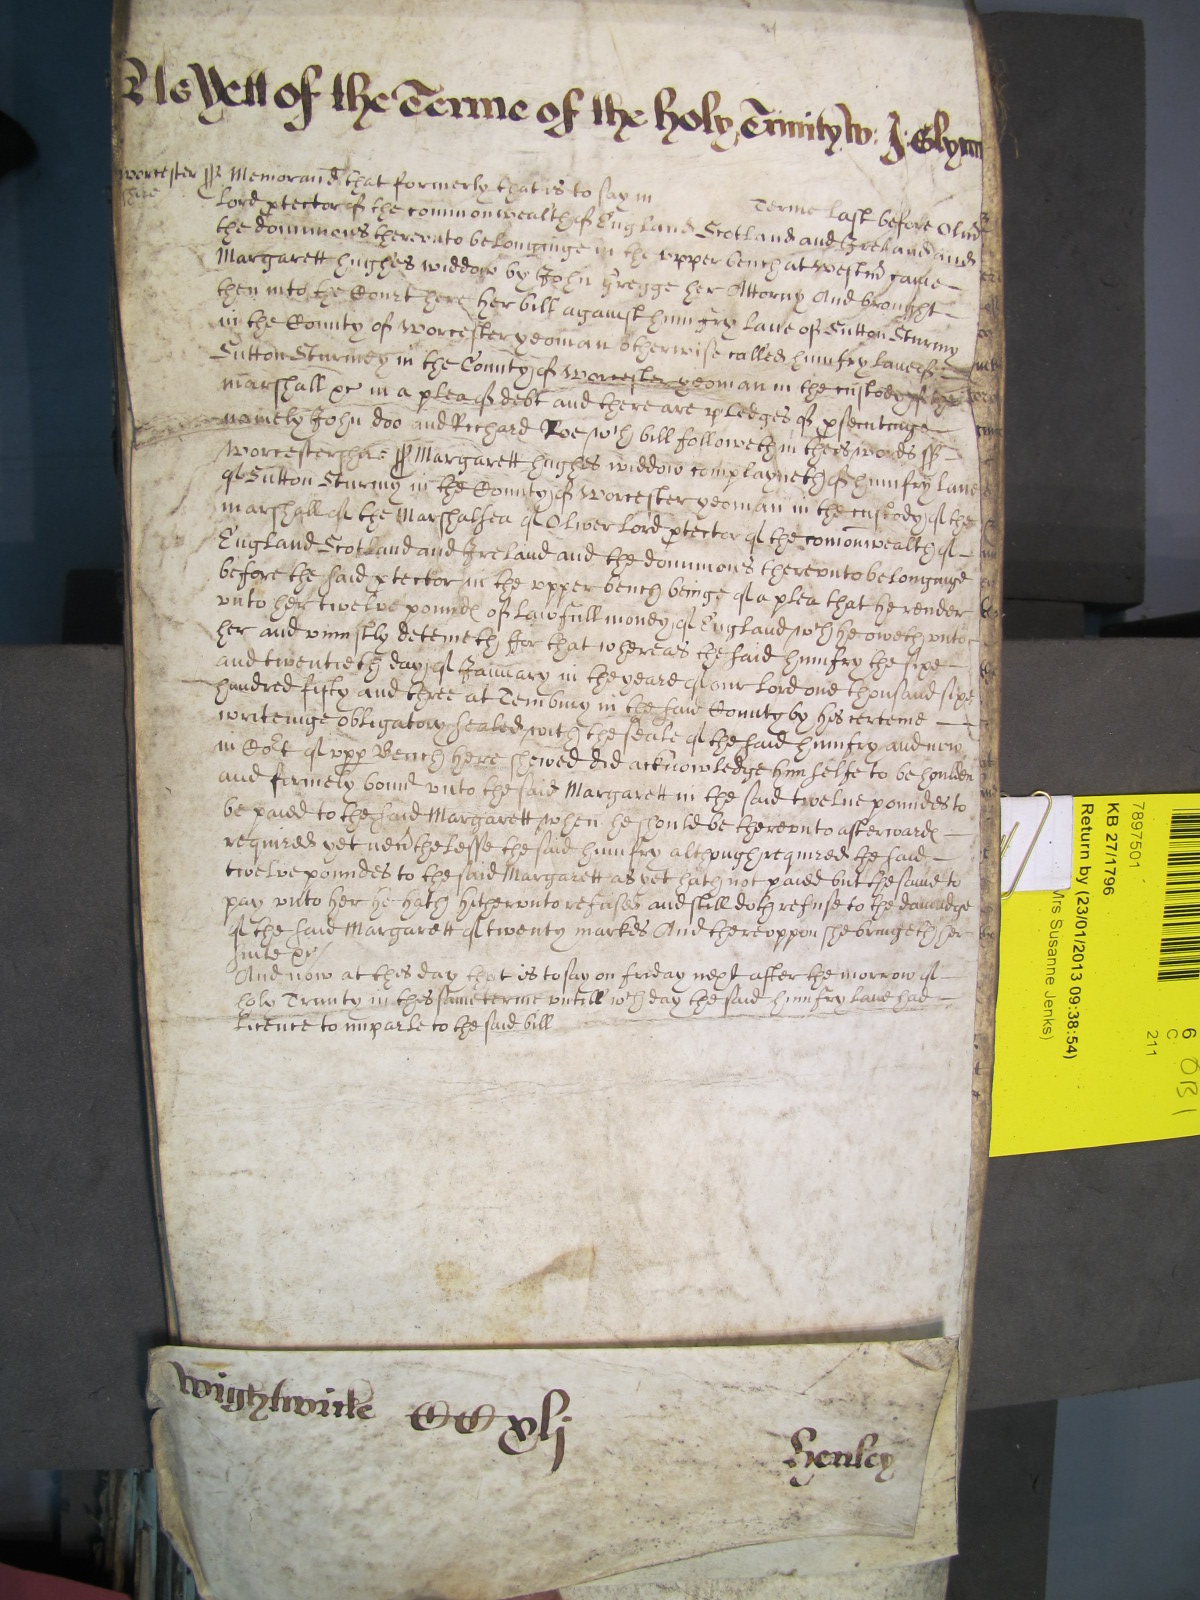 As Yett of the Terme of the holy Trinity W: J: Glynn
Worcester ss Memorand that formerly that is to say in Terme last before Oliu
shire Lord ptector of the commonwealth of England Scotland and Ireland and
the dominions therevnto belonginge in the vpper bench at westm came
Margarett Hughes widdow by John Gregge her Attorny And brought
then into the Court here her bill against Humfry Lane of Sutton Sturmy
in the County of Worcester yeoman otherwise called Humfry Lane of
Sutton Sturmey in the County of Worcester yeoman in the custody of the
marshall &c in a plea of debt and there are pledges of psecutinge
namely John doo and Richard Roe wch bill followeth in theis words ss
Worcestershire ss Margarett Hughes widdow complayneth of Humfry Lane
of Sutton Sturmy in the County of Worcester yeoman in the custody of the
marshall of the Marshalsea of Oliver Lord ptector of the comonwealth of
England Scotland and Ireland and the dominions therevnto belonginge
before the said ptector in the vpper bench beinge of a plea that he render
vnto her twelve pounds of lawfull money of England wch he oweth vnto
her and vniustly deteineth For that whereas the said Humfry the sixe
and twentieth day of January in the yeare of our Lord one thousand sixe
hundred fifty and three at Tembury in the said County by his certeine
writeinge obligatory sealed with the seale of the said Humfry and now
in Cort of vpp Bench here shewed did acknowledge himselfe to be houlden
and firmely bound vnto the said Margarett in the said twelue poundes to
be paied to the said Margarett when he should be therevnto afterwards
required yet nevthelesse the said Humfry although required the said
twelve poundes to the said Margarett as yet hath not paied but the same to
pay vnto her he hath hithervnto refused and still doth refuse to the damadge
of the said Margarett of twenty markes And therevppon she bringeth her
suite &c
And now at this day that is to say on friday next after the morrow of
holy Trinity in this same terme vntill wch day the said Humfry Lane had
Licence to imparle to the said bill
Wightwicke CCxlj
Henley
7897501
KB 27/1796
Return by (23/01/2013 09:38:54)
Mrs Susanne Jenks)
6
C
211
OB 1